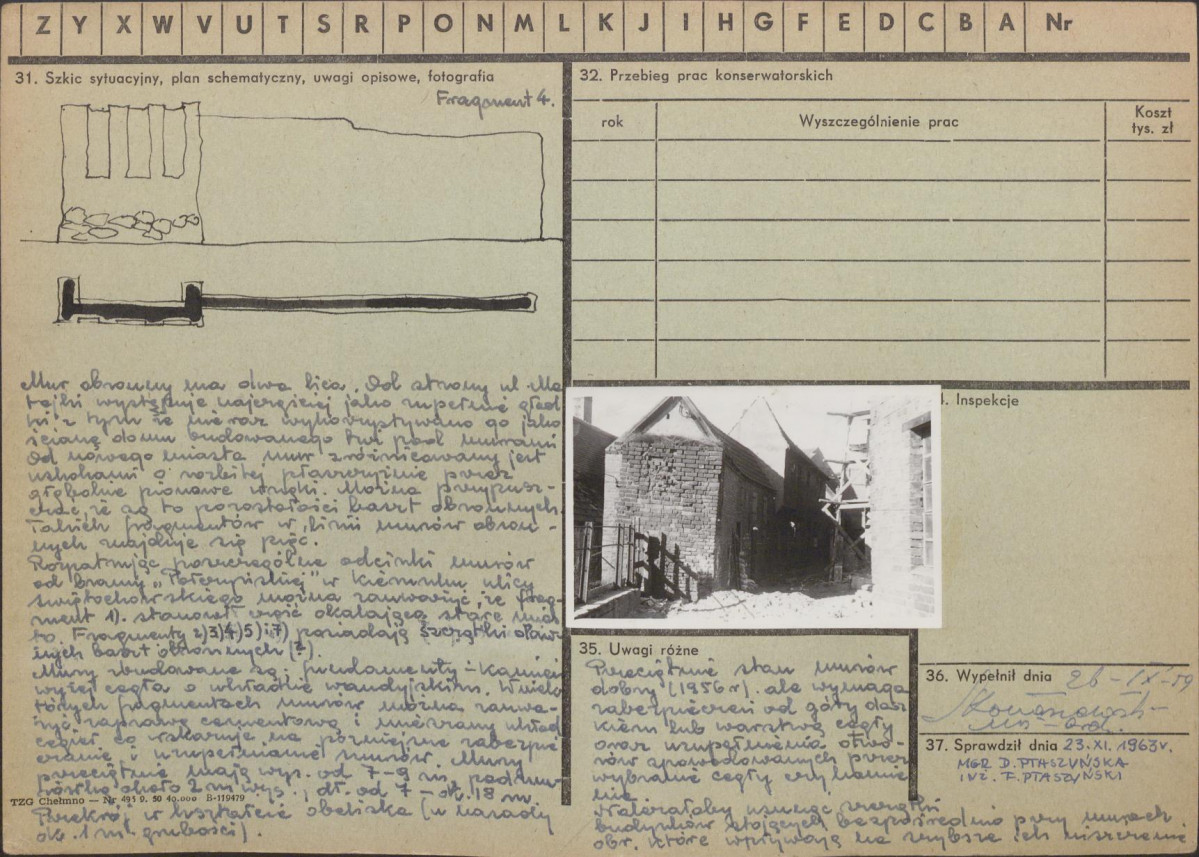 Z Y X W V U T S R P O N M L K J I H G F E D C B A Nr
31. Szkic sytuacyjny, plan schematyczny, uwagi opisowe, fotografia
Fragment 4.
Mur obronny ma dwa lica. Od strony ul. Ma
tejki występuje najczęściej jako zupełnie gład
ki z tym że nieraz wykorzystywano go jako
ścianę domu budowanego tuż pod murami
Od nowego miasta mur zróżnicowany jest
uskokami o rozbitej płaszczyźnie przez
głębokie pionowe wnęki. Można przypusz-
czać, że są to pozostałości baszt obronnych.
Takich fragmentów w linii murów obron-
nych znajduje się pięć.
Rozpatrując poszczególne odcinki murów
od bramy w kierunku ulicy
Świętochowskiego można zauważyć, że frag
ment 1). stanowi część okalającą stare mias
to. Fragmenty 2)3)4)5)i7) posiadają szczątki daw
nych baszt obronnych (?).
Mury zbudowane są; fundamenty – kamień
wyżej cegła o układzie wendyjskim. W wielu
różnych fragmentach murów można zauwa-
żyć zaprawę cementową i nieznany układ
cegieł co wskazuje na późniejsze zabezpie
czanie i uzupełnianie murów. Mury
przeciętnie mają wys. od 7-9 m, podmu-
rówka około 2 m wys., dł. od 7 – ok. 18 m.
TZG Chełmno — Nr 495 9. 50 40.000 B-119479
Przekrój w kształcie obeliska (u nasady
ok. 1 m. grubości).
32. Przebieg prac konserwatorskich
rok Wyszczególnienie prac Koszt
tys. zł
Inspekcje
35. Uwagi różne
Przeciętnie stan murów
dobry (1956 r). ale wymaga
zabezpieczeń od góry dasz
kiem lub warstwą cegły
oraz uzupełnienia otwo-
rów spowodowanych przez
wybranie cegły czy kamie
nie.
Należałoby usunąć
budynków stojących bezpośrednio przy murach
obr. które wpływają na szybsze ich niszczenie
36. Wypełnił dnia 26-IX-59
37. Sprawdził dnia 23.XI.1963r.
MGR D. PTASZYŃSKA
INŻ. F. PTASZYŃSKI